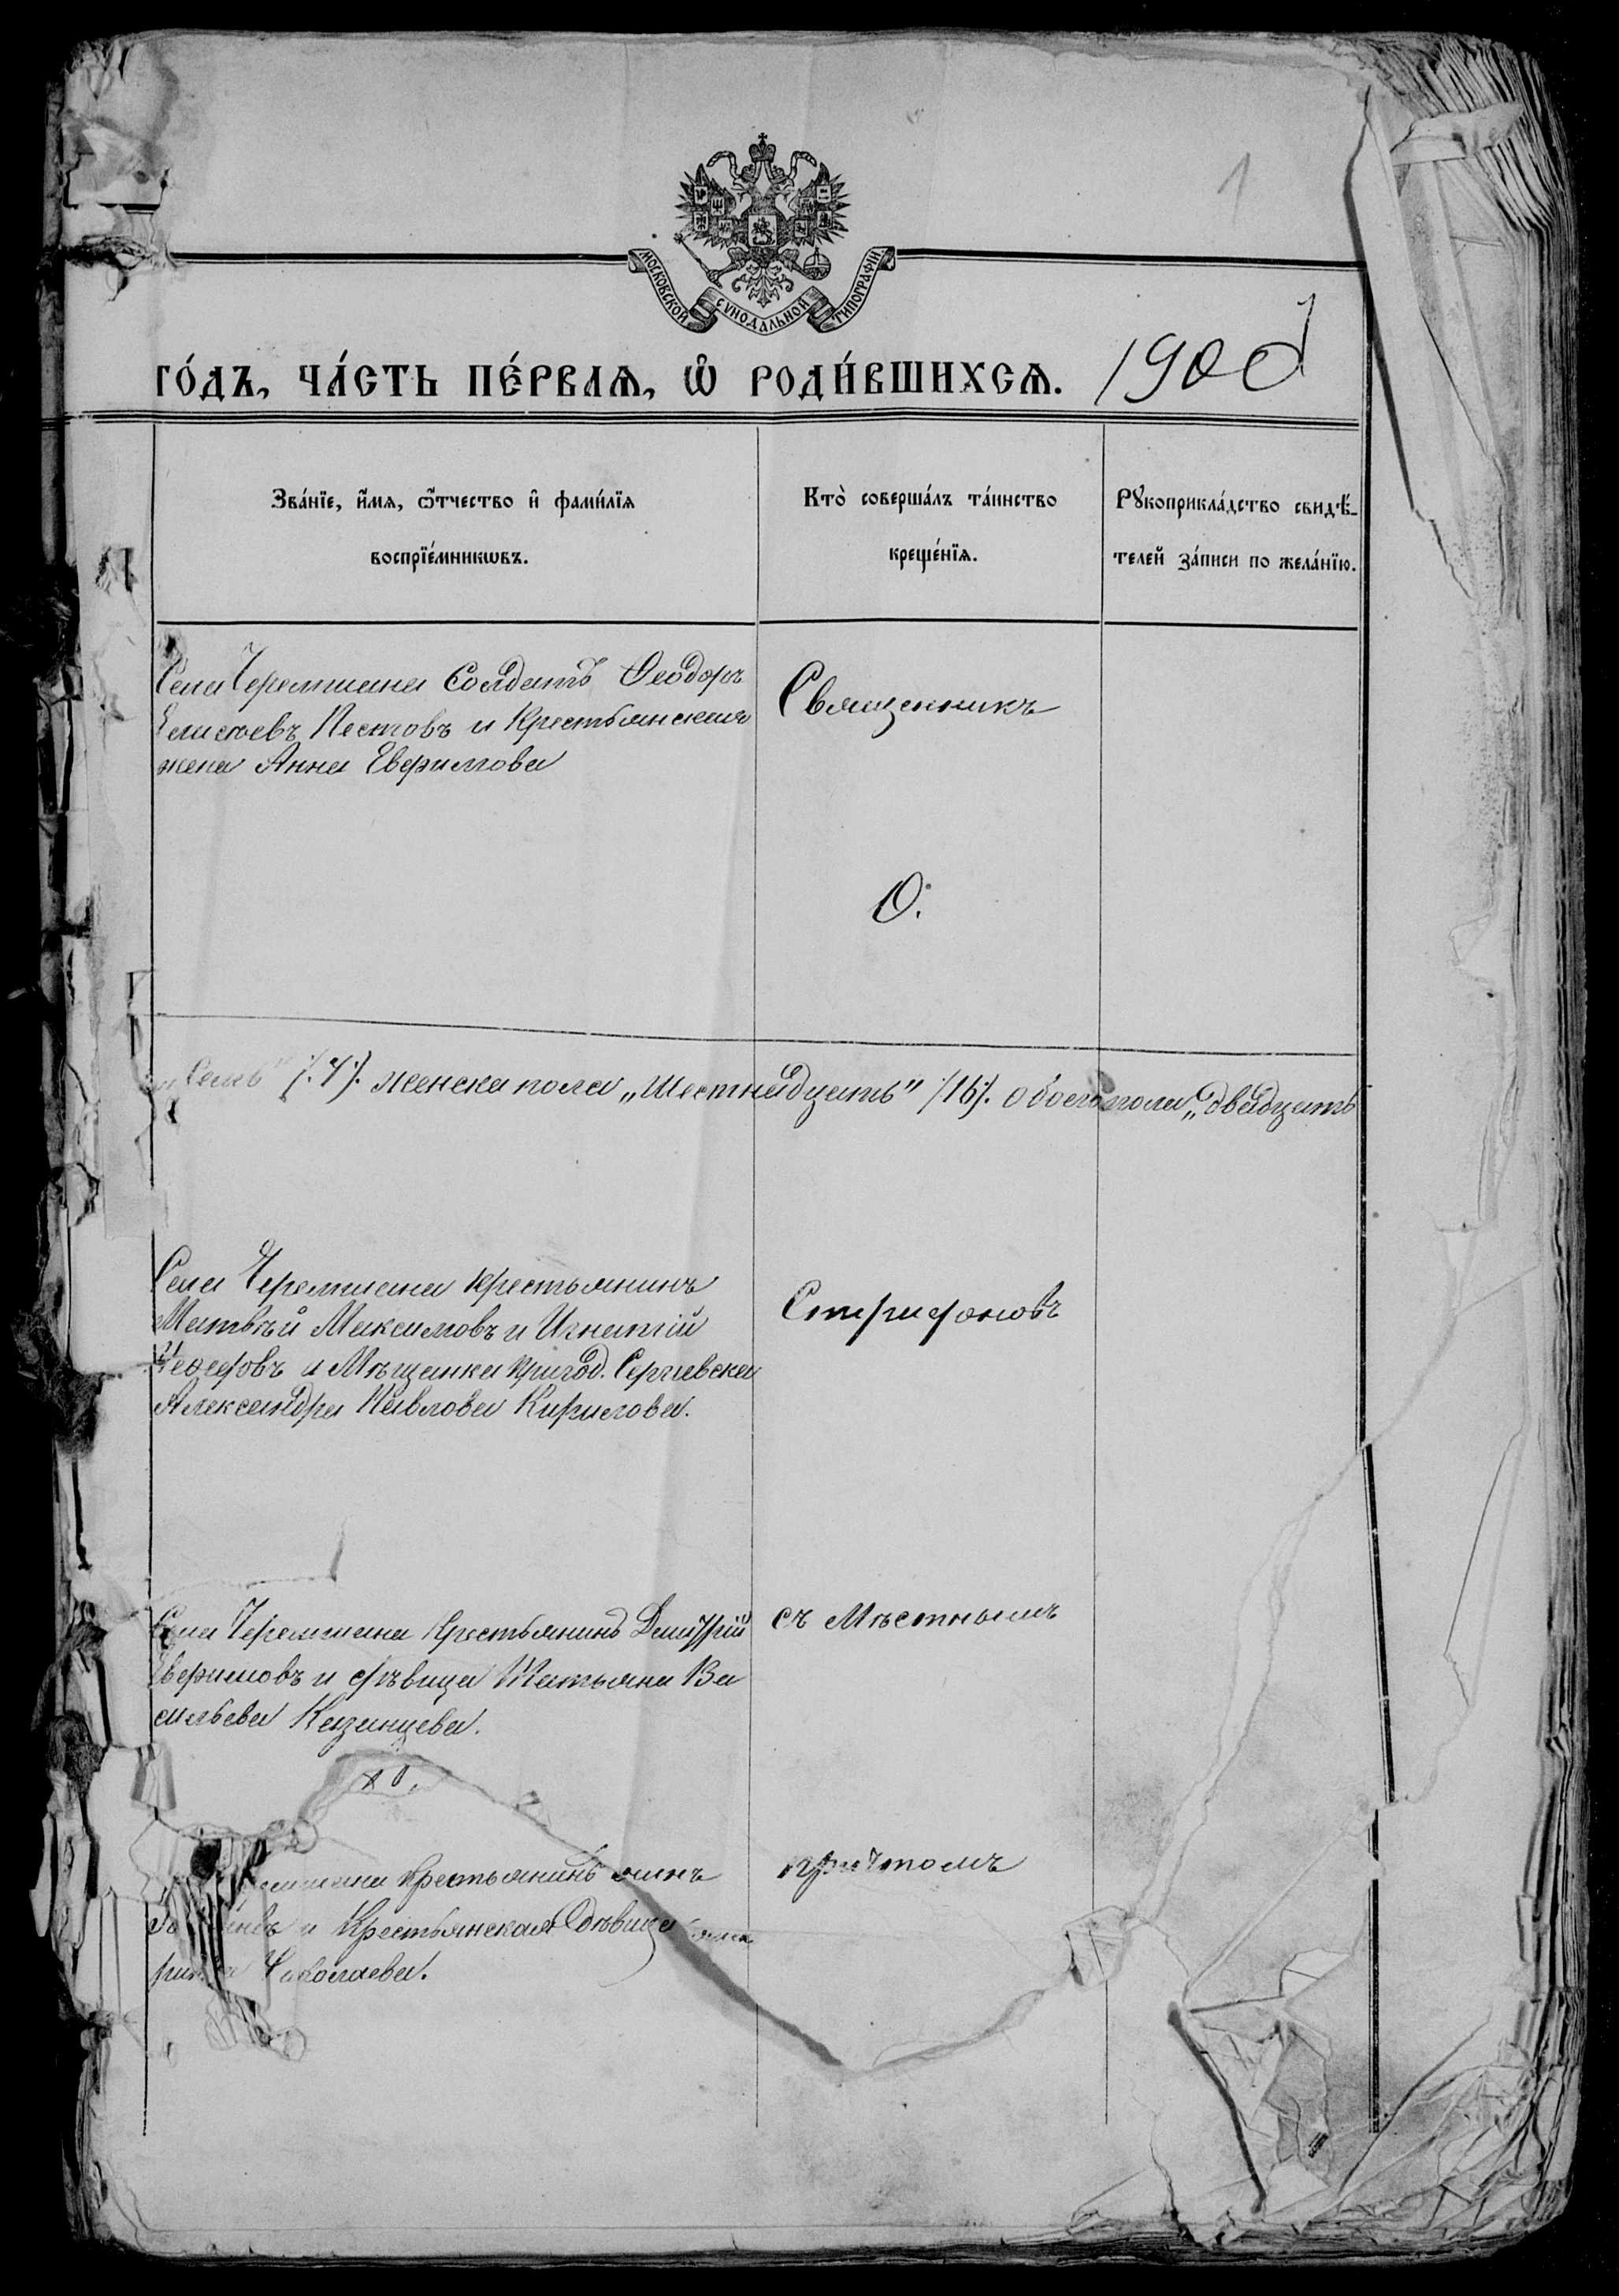 1
МОСКОВСКОЙ СУНОДАЛЬНОЙ ТИПОГРАФІИ
го́дъ, ча́сть пе́рваѧ, ѽ роди́вшихсѧ. 1900
Зва́нїе, и҆́мѧ, ѻ҆́тчество и҆ фами́лїѧ
воспрїе́мникѡвъ.
Кто̀ соверша́лъ та́инство
креще́нїѧ.
Рꙋкоприкла́дство свидѣ́-
телей за́писи по жела́нїю.
Села Черемшана Солдатъ Ѳеодоръ
Елисѣевъ Пестовъ и Крестьянская
жена Анна Евфимова
Священникъ
О.
Семь" /:7:/. женска пола „Шестнадцать" /16/. обоего пола „двадцать
Села Черемшана крестьянинъ
Матвѣй Максимовъ и Игнатій
и Мѣщанка пригод. Сергіевска
Александра Павлова Кирилова.
Стрифоновъ
Села Черемшана Крестьянинъ Димитрій
Евфимовъ и дѣвица Татьяна Ва
сильева Казанцева.
съ Мѣстнымъ
крестьянинъ
и Крестьянская дѣвица
причтомъ